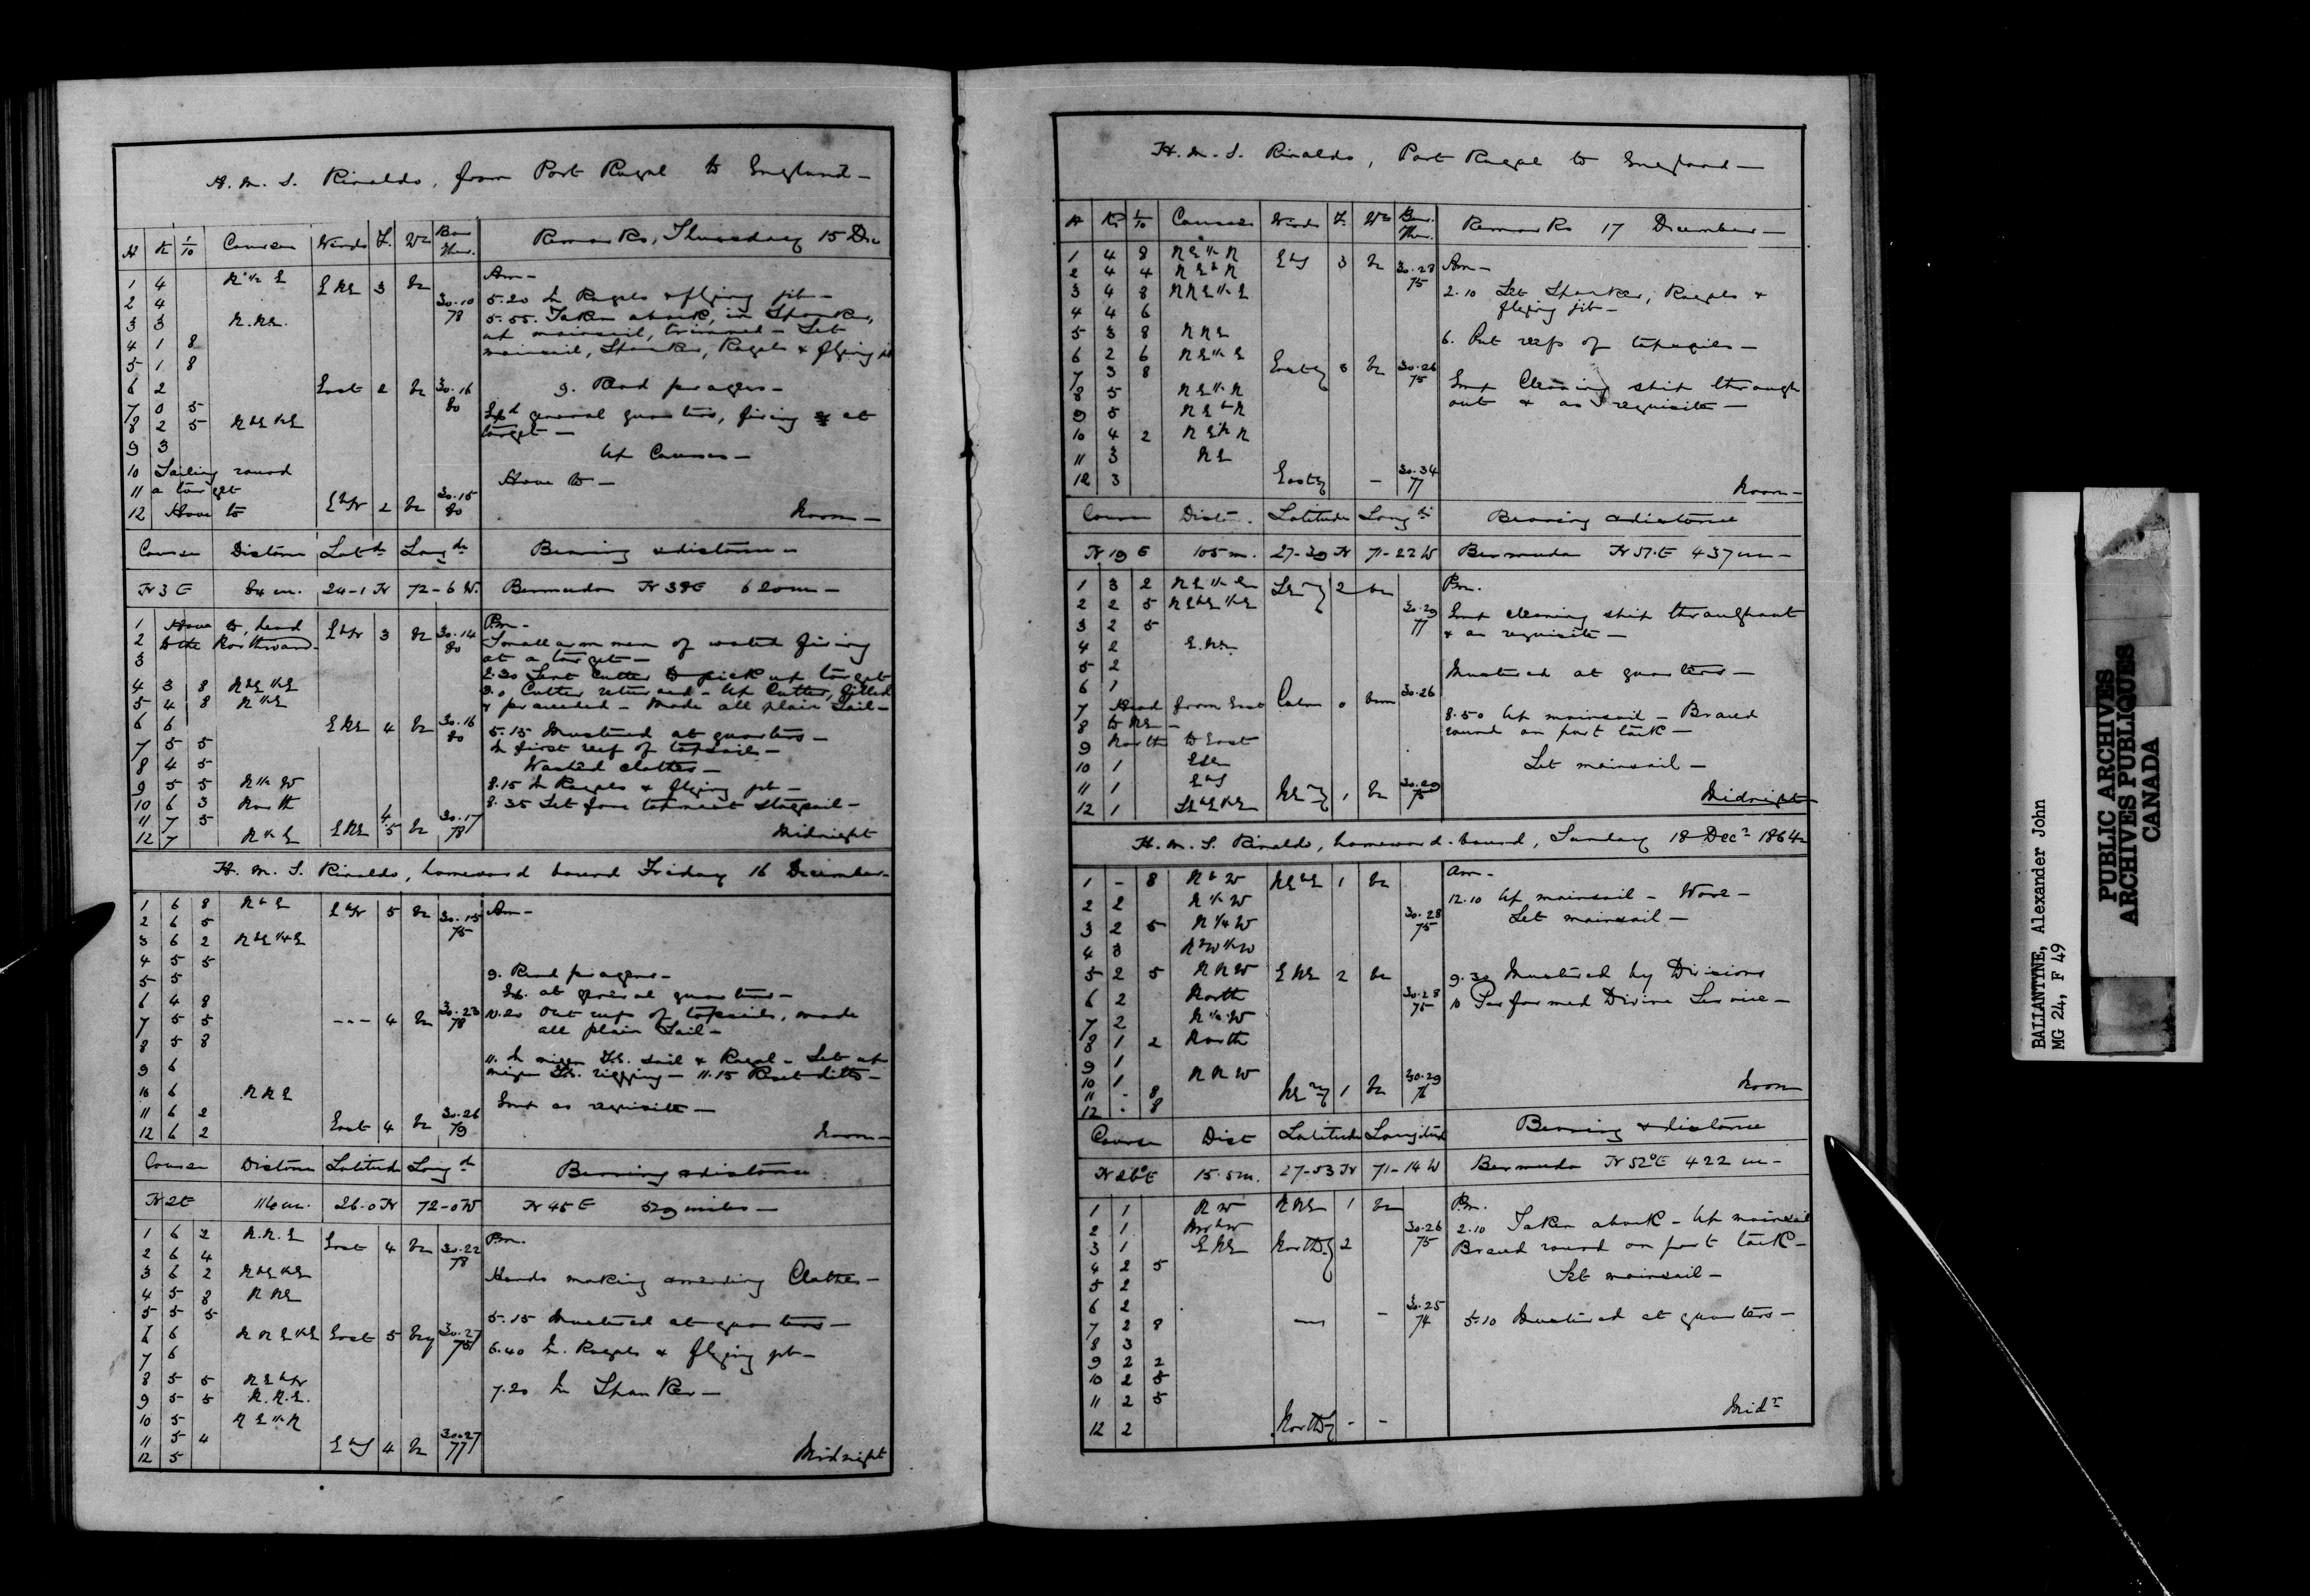 H. M. S. Rinaldo, from Port Royal to England —
H K 1/10 Courses Winds F. Wr Bar Ther. Remarks, Thursday 15 Dec
Am —
1 4 N ½ E E NE 3 bc
2 4 30.10 78 5.20 In Royals & flying jib —
3 3 N. NE. 5.55. Taken aback, in Spanker,
up mainsail, trimmed — Set
4 1 8 mainsail, Spanker, Royals & flying jib
5 1 8
6 2 East 2 bc 30.16 80 9. Read prayers —
7 0 5 Exd general quarters, firing at
8 2 5 NbE ½E target —
9 3 Up Courses —
10 Sailing round
11 a target Hove to —
12 Hove to EbN 2 bc 30.15 80 Noon —
Course Distance Latde Longde Bearing & distance
N 3 E 84 m. 24-1 N 72-6 W. Bermuda N 38 E 620 m —
Pm —
1 Hove to, head EbN 3 bc 30.14 80 Small arm men of watch firing
2 to the Northward at a target —
3 2.30 Sent Cutter to pick up target
4 3 8 NbE ½E 3.0 Cutter returned — Up Cutter, filled
5 4 8 N ½E & proceeded — Made all plain Sail —
6 6 E NE 4 bc 30.16 80 5.15 Mustered at quarters —
7 5 5 In first reef of topsails —
8 4 5 Washed clothes —
9 5 5 N ½ W 8.15 In Royals & flying jib —
10 6 3 North 8.35 Set fore topmast staysail —
11 7 5
12 7 N ½ E E NE 4/5 bc 30.17 78 Midnight
H. M. S. Rinaldo, homeward bound Friday 16 December —
1 6 8 N b E EbN 5 bc 30.15 75 Am —
2 6 5
3 6 2 NbE ¼E
4 5 5
5 5 9. Read prayers —
6 4 8 Ex. at general quarters —
7 5 5 --- 4 bc 30.23 78 10.20 Out reefs of topsails, made
8 5 8 all plain Sail —
9 6 11. In mizen T.G. sail & Royal — Set up
mizen T.G. rigging — 11.15 Reset ditto —
10 6 N N E
11 6 2 Empd as requisite —
12 6 2 East 4 bc 30.26 79 Noon —
Course Distance Latitude Longde Bearing & distance
N 2 E 116 m. 26-0 N 72-0 W N 45 E 529 miles —
1 6 2 N. N. E East 4 bc 30.22 78 Pm.
2 6 4
3 6 2 NbE ½E Hands making & mending Clothes —
4 5 8 N NE
5 5 5 5.15 Mustered at quarters —
6 6 N N E ½E East 5 bcq 30.27 75
7 6 6.40 In Royals & flying jib —
8 5 5 NEbN
9 5 5 N. N. E. 7.20 In Spanker —
10 5 N E ½ N
11 5 4
12 5 EbS 4 bc 30.27 77 Midnight
H. M. S. Rinaldo, Port Royal to England —
H Ks 1/10 Courses Winds F. Wr Bar. Ther. Remarks 17 December —
1 4 8 N E ½ N EbS 3 bc 30.28 75 Am —
2 4 4 N E b N 2.10 Set Spanker, Royals &
3 4 8 N N E ½ E flying jib —
4 4 6
5 3 8 N N E 6. Out reefs of topsails —
6 2 6 N E ½ E Eastly 3 bc 30.26 75
7 3 8 Empd Cleaning ship through
8 5 N E ½ N out & as requisite —
9 5 N E b N
10 4 2 N E ½ N
11 3 N E
12 3 Eastly — 30.34 77 Noon —
Course Distce. Latitude Longde Bearing & distance
N 19 E 105 m. 27-39 N 71-22 W Bermuda N 57. E 437 m —
1 3 2 2 bc Pm.
2 2 5 30.29 77 Empd cleaning ship throughout
3 2 5 & as requisite —
4 2
5 2 Mustered at quarters —
6 1
7 Head from East Calm 0 bcm 30.26
8 to NE — 8.50 Up mainsail — Braced
9 North to East round on port tack —
10 1 ESE Set mainsail —
11 1 EbS
12 1 NEly 1 bc 30.29 75 Midnight
H. M. S. Rinaldo, homeward-bound, Sunday 18 Decr 1864
1 - 8 N b W NEbE 1 bc Am —
2 2 N ½ W 12.10 Up mainsail — Wore —
3 2 5 N ¼ W 30.28 75 Set mainsail —
4 3 NbW ½W
5 2 5 N N W E NE 2 bc 9.30 Mustered by Divisions
6 2 North 30.28 75 10 Performed Divine Service —
7 2 N ½ W
8 1 2 North
9 1
10 1 N N W
11 - 8 NEly 1 bc 30.29 76 Noon
12 - 8
Course Dist Latitude Longitude Bearing & distance
N 26° E 15.5 m. 27-53 N 71-14 W Bermuda N 52° E 422 m —
1 1 N W N NE 1 bc Pm.
2 1 NWbW 30.26 75 2.10 Taken aback — Up mainsail
3 1 E NE Northly 2 Braced round on port tack —
4 2 5 Set mainsail —
5 2
6 2 — 30.25 74 5.10 Mustered at quarters —
7 2 8
8 3
9 2 2
10 2 5
11 2 5
12 2 Northly - - Midt
BALLANTYNE, Alexander John
MG 24, F 49
PUBLIC ARCHIVES
ARCHIVES PUBLIQUES
CANADA